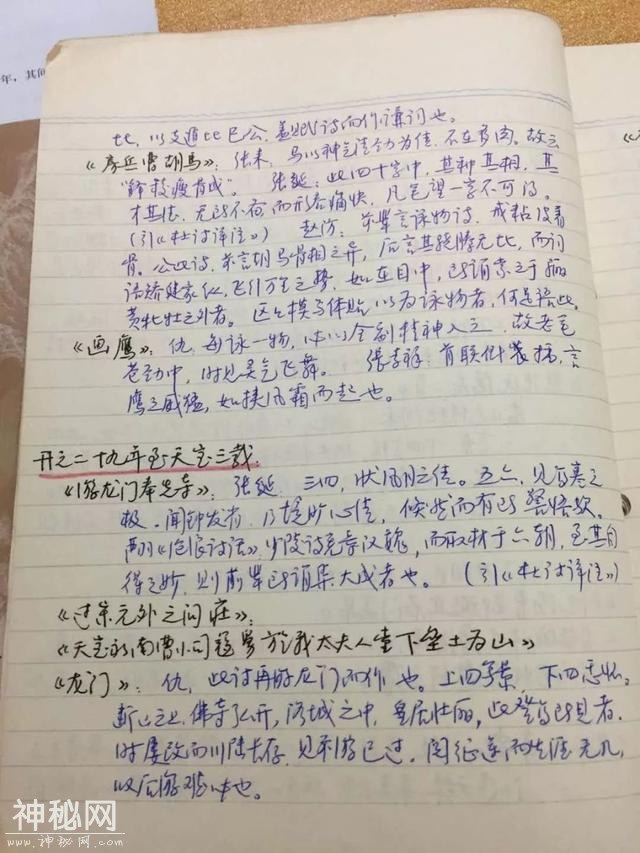 年，其他
比，以支道比已公，盖赋诗而作谦词也。
《房兵曹胡马》：张耒：马以神气清劲为佳，不在多肉。故云
"锋棱瘦骨成"。 张綖：此四十字中，其种其相，其
才其德，无所不备，而形容痛快，凡笔望一字不可得。
（引《杜诗详注》） 赵汸：前辈言咏物诗，戒粘皮着
骨。公此诗，前言胡马骨相之异，后言其骁腾无比，而词
语矫健豪纵，飞行万里之势，如在目中，所谓索之于骊
黄牝牡之外者。区区模写体贴以为咏物者，何足语此。
《画鹰》：仇：每咏一物，必以全副精神入之，故老笔
苍劲中，时见灵气飞舞。 张 ：首联 ，言
鹰之威猛，如挟风霜而起也。
开元二十九年至天宝三载：
《游龙门奉先寺》：张綖：三四，状风月之佳。五六，见高寒之
极。闻钟发省，乃境旷心清，倏然而有所警悟欤。
《沧浪诗话》，少陵诗宪章汉魏，而取材于六朝，至其自
得之妙，则前辈所谓集大成者也。（引《杜诗详注》）
《过宋员外之问庄》：
《天宝初南曹小司寇舅于我太夫人堂下垒土为山》
《龙门》：仇：此诗再游龙门而作也。上四写景，下四志怀。
断山之上，佛寺弘开，洛城之中，皇居壮丽，此登高所见者。
时屡改而川陆长存，见列游已过，阅征途而生涯无几，
以后游难必也。
神秘网
www.神秘网.com